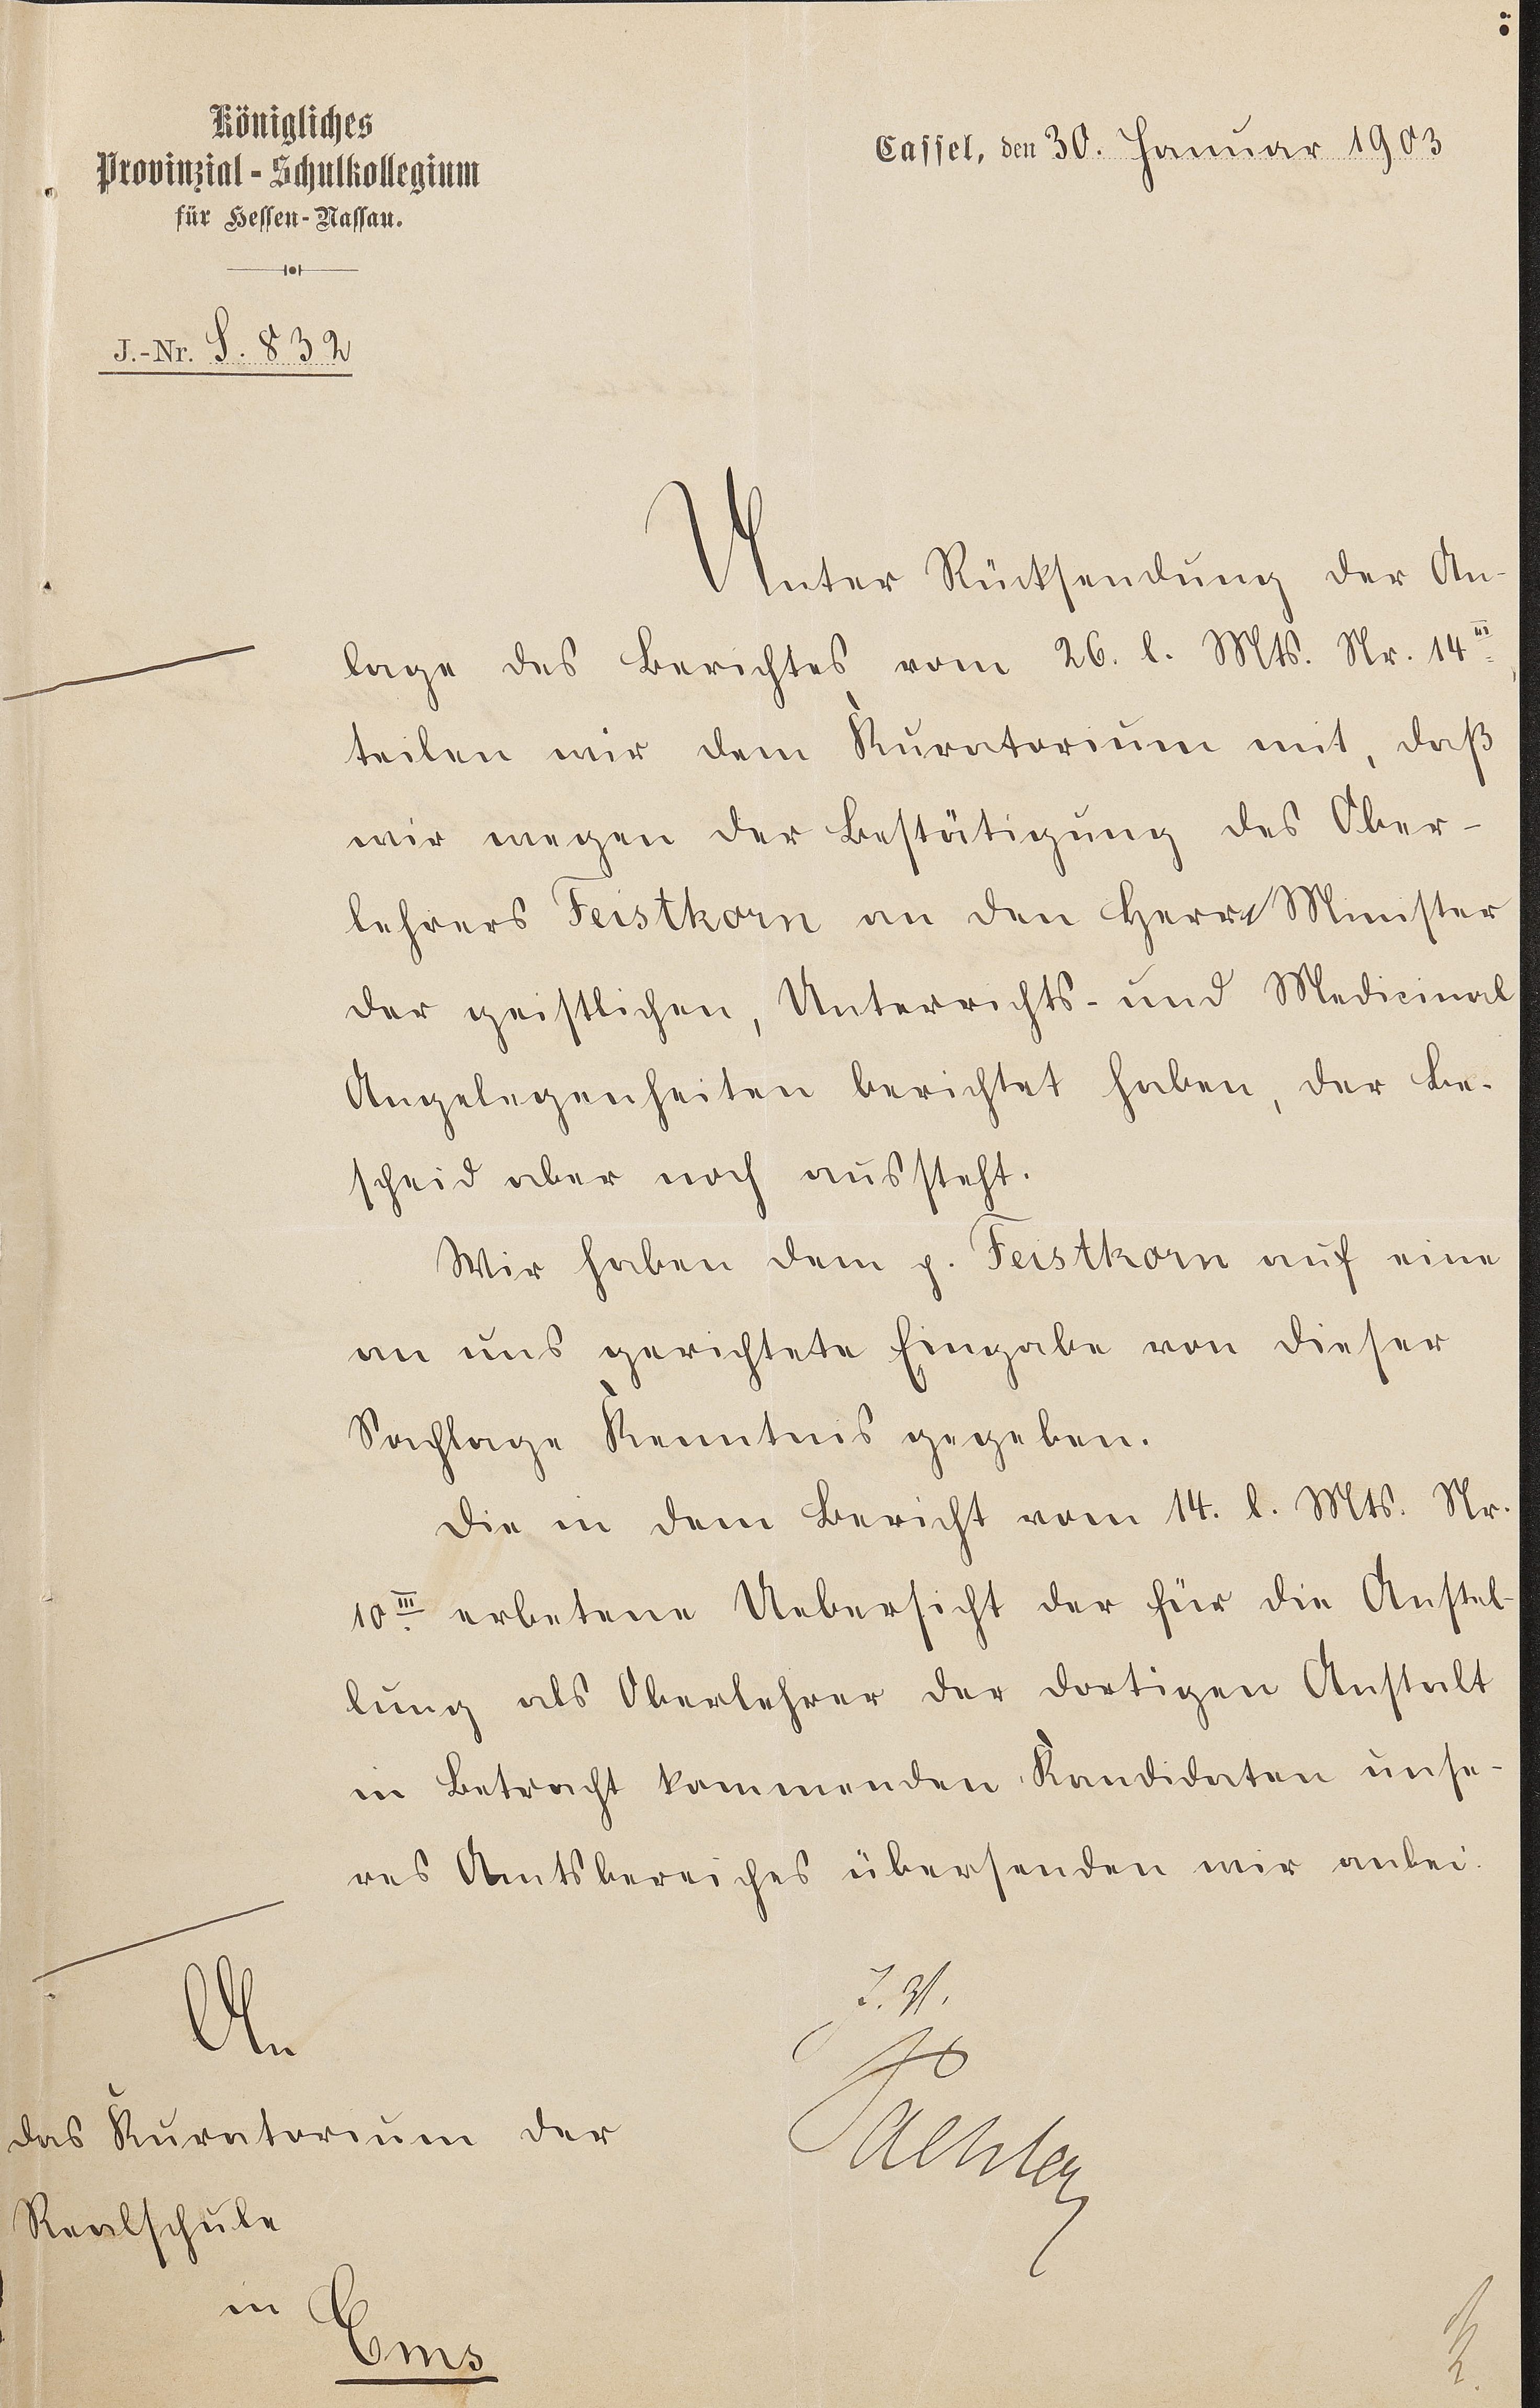 Königliches
Provinzial-Schulkollegium
für Hessen-Nassau.
Cassel, den 30. Januar 1903
J.-Nr. S. 832
Unter Rücksendung der An-
lage des Berichtes vom 26. l. Mts. Nr. 14III,
teilen wir dem Kuratorium mit, daß
wir wegen der Bestätigung des Ober-
lehrers Feistkorn an den Herrn Minister
der geistlichen, Unterrichts- und Medicinal
Angelegenheiten berichtet haben, der Be-
scheid aber noch aussteht.
Wir haben dem p. Feistkorn auf eine
an uns gerichtete Eingabe von dieser
Sachlage Kenntnis gegeben.
Die in dem Bericht vom 14. l. Mts. Nr.
10III erbetene Uebersicht der für die Anstel-
lung als Oberlehrer der dortigen Anstalt
in Betracht kommenden Kandidaten unse-
res Amtsbereiches übersenden wir anbei.
An
das Kuratorium der
Realschule
in Ems
Paehler